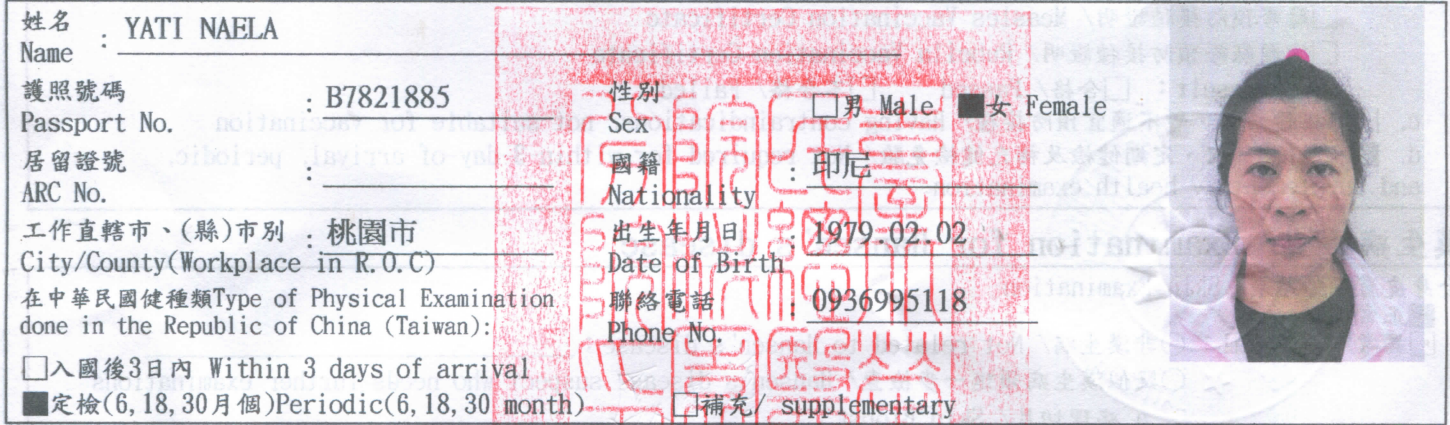 姓名
Name : YATI NAELA
護照號碼
Passport No. : B7821885
居留證號
ARC No. :
工作直轄市、(縣)市別 : 桃園市
City/County(Workplace in R.O.C)
在中華民國健種類Type of Physical Examination
done in the Republic of China (Taiwan):
□入國後3日內 Within 3 days of arrival
■定檢(6,18,30月個)Periodic(6,18,30 month) □補充/ supplementary
性別
Sex : □男 Male ■女 Female
國籍
Nationality : 印尼
出生年月日
Date of Birth : 1979.02.02
聯絡電話
Phone No. : 0936995118